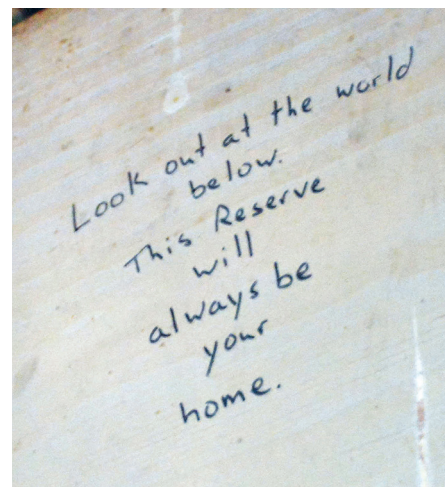 Look out at the world
below.
This Reserve
will
always be
your
home.